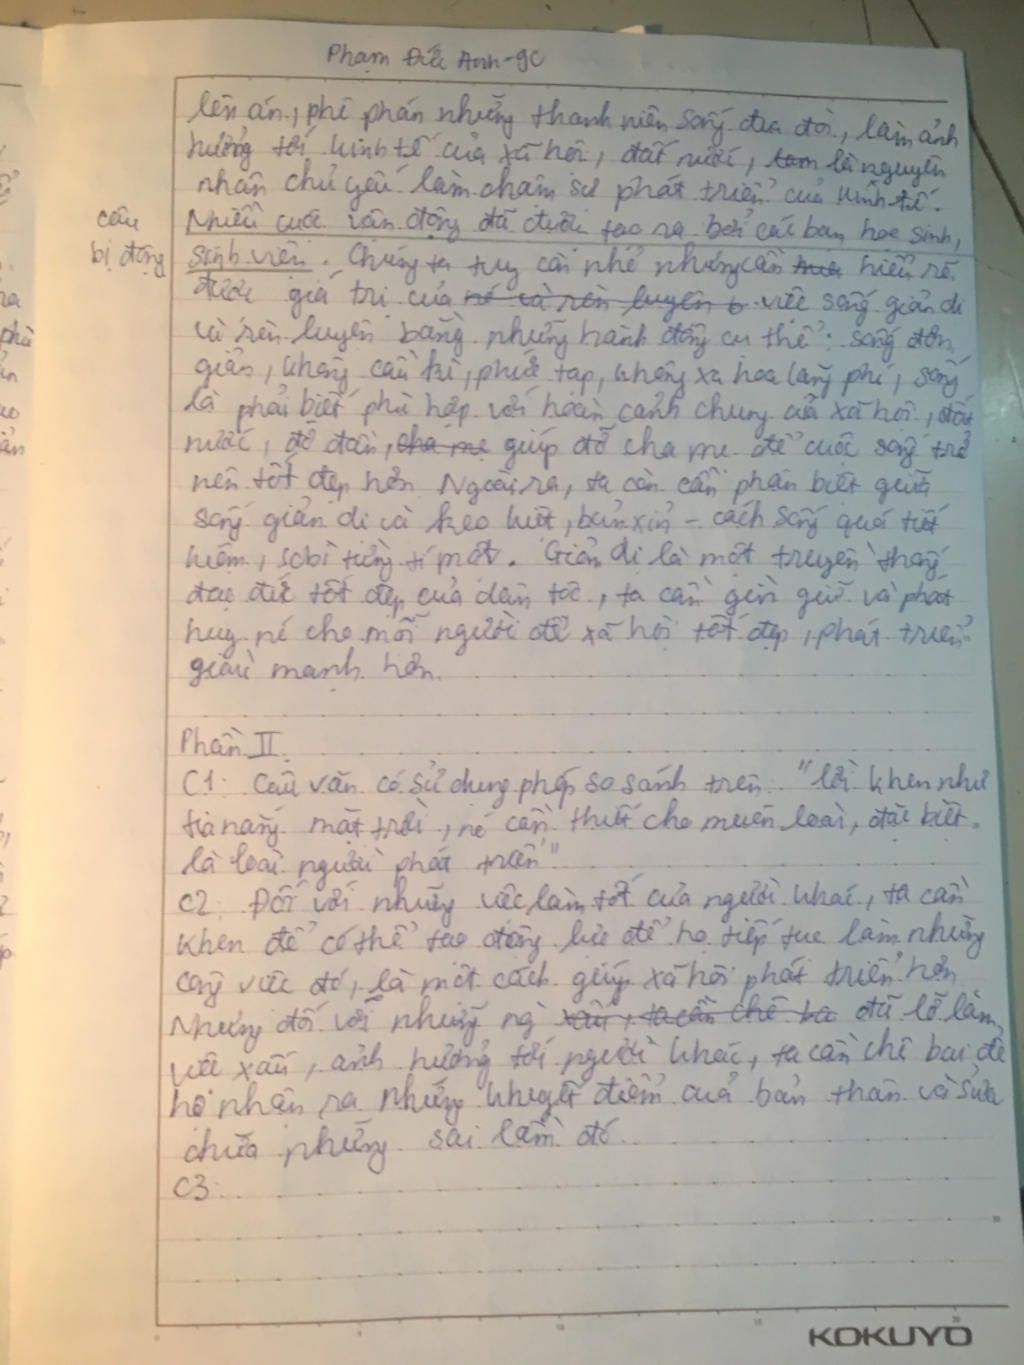 Phạm Đức Anh-9C
lên án, phê phán những thanh niên sống đua đòi, làm ảnh
hưởng tới kinh tế của xã hội, đất nước, làm là nguyên
nhân chủ yếu làm chậm sự phát triển của kinh tế.
câu
bị động
Nhiều cuộc vận động đã được tạo ra bởi các bạn học sinh,
sinh viên. Chúng ta tuy còn nhỏ nhưng cần hiểu rõ
được giá trị của nó và rèn luyện việc sống giản dị
và rèn luyện bằng những hành động cụ thể: sống đơn
giản, không cầu kì, phức tạp, không xa hoa lãng phí, sống
là phải biết phù hợp với hoàn cảnh chung của xã hội, đất
nước, đỡ đần, cha mẹ giúp đỡ cha mẹ để cuộc sống trở
nên tốt đẹp hơn. Ngoài ra, ta còn cần phân biệt giữa
sống giản dị và keo kiệt, bủn xỉn - cách sống quá tiết
kiệm, so bì từng tí một. Giản dị là một truyền thống
đạo đức tốt đẹp của dân tộc, ta cần gìn giữ và phát
huy nó cho mỗi người để xã hội tốt đẹp, phát triển
giàu mạnh hơn.
Phần II.
C1: Câu văn có sử dụng phép so sánh trên: "lời khen như
tia nắng mặt trời, nó cần thiết cho muôn loài, đặc biệt
là loài người phát triển"
C2: Đối với những việc làm tốt của người khác, ta cần
khen để có thể tạo động lực để họ tiếp tục làm những
công việc đó, là một cách giúp xã hội phát triển hơn
Nhưng đối với những ng xấu, ta cần chê ba đã lỡ làm
việc xấu, ảnh hưởng tới người khác, ta cần chê bai để
họ nhận ra những khuyết điểm của bản thân và sửa
chữa những sai lầm đó.
C3:
KOKUYO